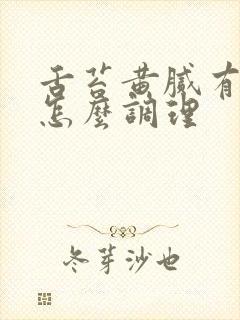 舌苔黄膩有
怎麼調理
冬芽沙也